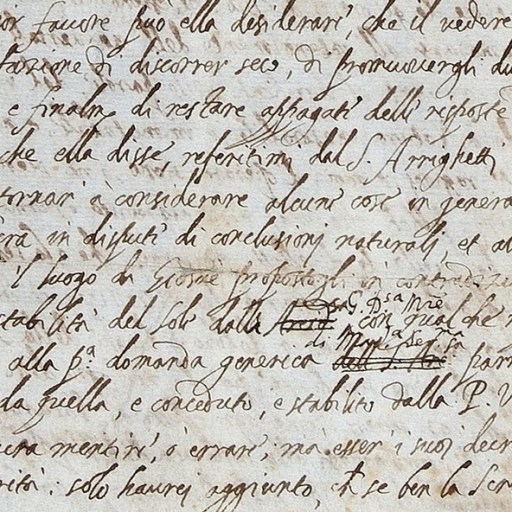 ior favore può ella desiderare, che il vedere
fazione di discorrer seco, di promuovergli du
e finalm.e di restare appagati delle risposte
che ella disse, referitimi dal S. Arrighetti
tornar' à considerare alcune cose in genera
ra in dispute di conclusioni naturali, et al
il luogo di Giosuè propostogli in contradizi
stabilità del Sole dalla G. D.sa Mre con qualche
alla p.a domanda generica di Mad.a Ser.ma parm
da quella, e conceduto, e stabilito dalla P. V
cra mentire, ò errare; mà esser' i suoi decr
rità: solo haurei aggiunto, ch se ben la Scri